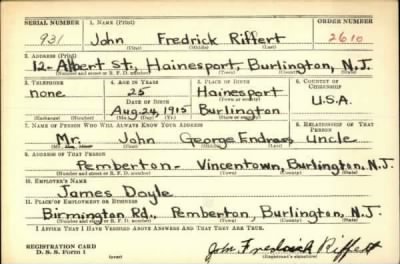 SERIAL NUMBER 1. NAME (Print) ORDER NUMBER
931 John Fredrick Riffert 2610
(First) (Middle) (Last)
2. ADDRESS (Print)
12- Albert St., Hainesport, Burlington, N.J.
(Number and street or R. F. D. number) (Town) (County) (State)
3. TELEPHONE 4. AGE IN YEARS 5. PLACE OF BIRTH 6. COUNTRY OF CITIZENSHIP
none 25 Hainesport
DATE OF BIRTH (Town or county) U.S.A.
Aug 24, 1915 Burlington
(Exchange) (Number) (Mo.) (Day) (Yr.) (State or country)
7. NAME OF PERSON WHO WILL ALWAYS KNOW YOUR ADDRESS 8. RELATIONSHIP OF THAT PERSON
Mr. John George Endrass Uncle
(Mr., Mrs., Miss) (First) (Middle) (Last)
9. ADDRESS OF THAT PERSON
Pemberton - Vincentown, Burlington, N.J.
(Number and street or R. F. D. number) (Town) (County) (State)
10. EMPLOYER'S NAME
James Doyle
11. PLACE OF EMPLOYMENT OR BUSINESS
Birmington Rd., Pemberton, Burlington, N.J.
(Number and street or R. F. D. number) (Town) (County) (State)
I AFFIRM THAT I HAVE VERIFIED ABOVE ANSWERS AND THAT THEY ARE TRUE.
REGISTRATION CARD
D. S. S. Form 1 (over) John Fredrick Riffert
(Registrant's signature)